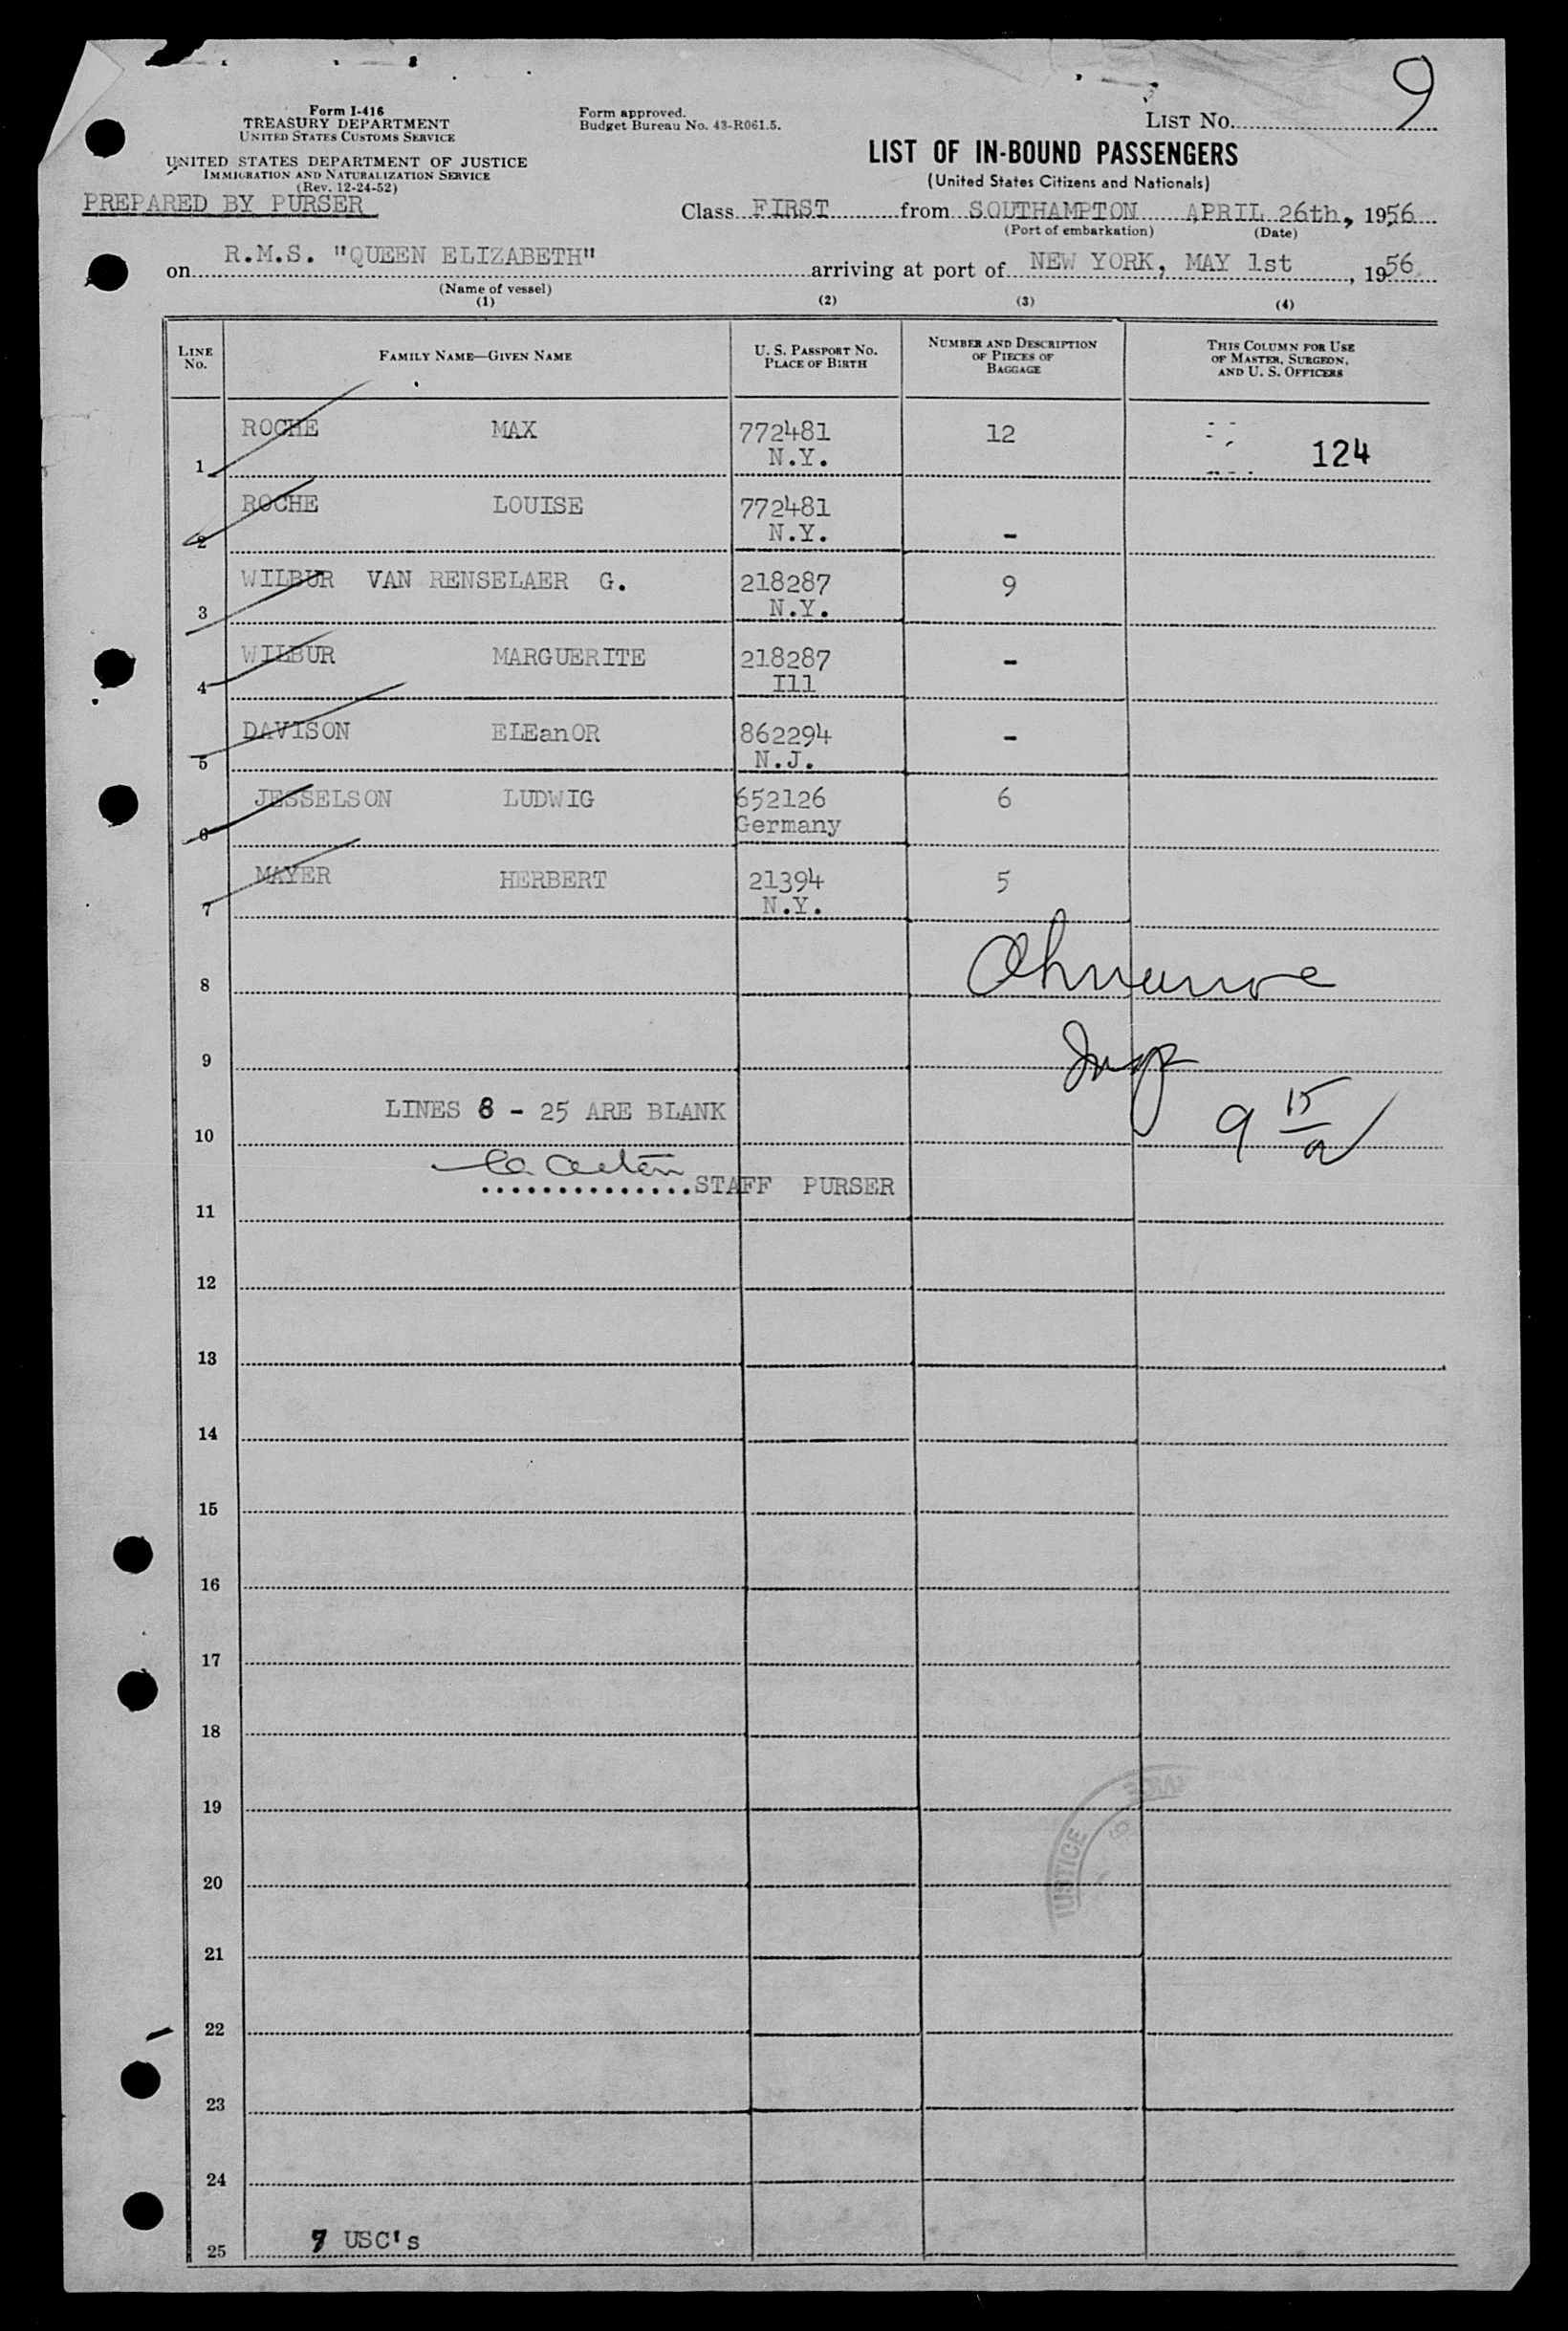 9
Form I-416
TREASURY DEPARTMENT
UNITED STATES CUSTOMS SERVICE
Form approved.
Budget Bureau No. 43-R061.5.
LIST NO.
UNITED STATES DEPARTMENT OF JUSTICE
IMMIGRATION AND NATURALIZATION SERVICE
(Rev. 12-24-52)
LIST OF IN-BOUND PASSENGERS
(United States Citizens and Nationals)
PREPARED BY PURSER
Class FIRST from SOUTHAMPTON APRIL 26th, 1956
(Port of embarkation) (Date)
on R.M.S. "QUEEN ELIZABETH" arriving at port of NEW YORK, MAY 1st, 1956
(Name of vessel)
(1) (2) (3) (4)
LINE NO. FAMILY NAME—GIVEN NAME U. S. PASSPORT NO. PLACE OF BIRTH NUMBER AND DESCRIPTION OF PIECES OF BAGGAGE THIS COLUMN FOR USE OF MASTER, SURGEON, AND U. S. OFFICERS
1 ROCHE MAX 772481 N.Y. 12 124
2 ROCHE LOUISE 772481 N.Y. -
3 WILBUR VAN RENSELAER G. 218287 N.Y. 9
4 WILBUR MARGUERITE 218287 Ill -
5 DAVISON ELEanOR 862294 N.J. -
6 JESSELSON LUDWIG 652126 Germany 6
7 MAYER HERBERT 21394 N.Y. 5
8
9 Insp
LINES 8 - 25 ARE BLANK
10 9 15/a
STAFF PURSER
11
12
13
14
15
16
17
18
19
20 JUSTICE
21
22
23
24
7 USC's
25